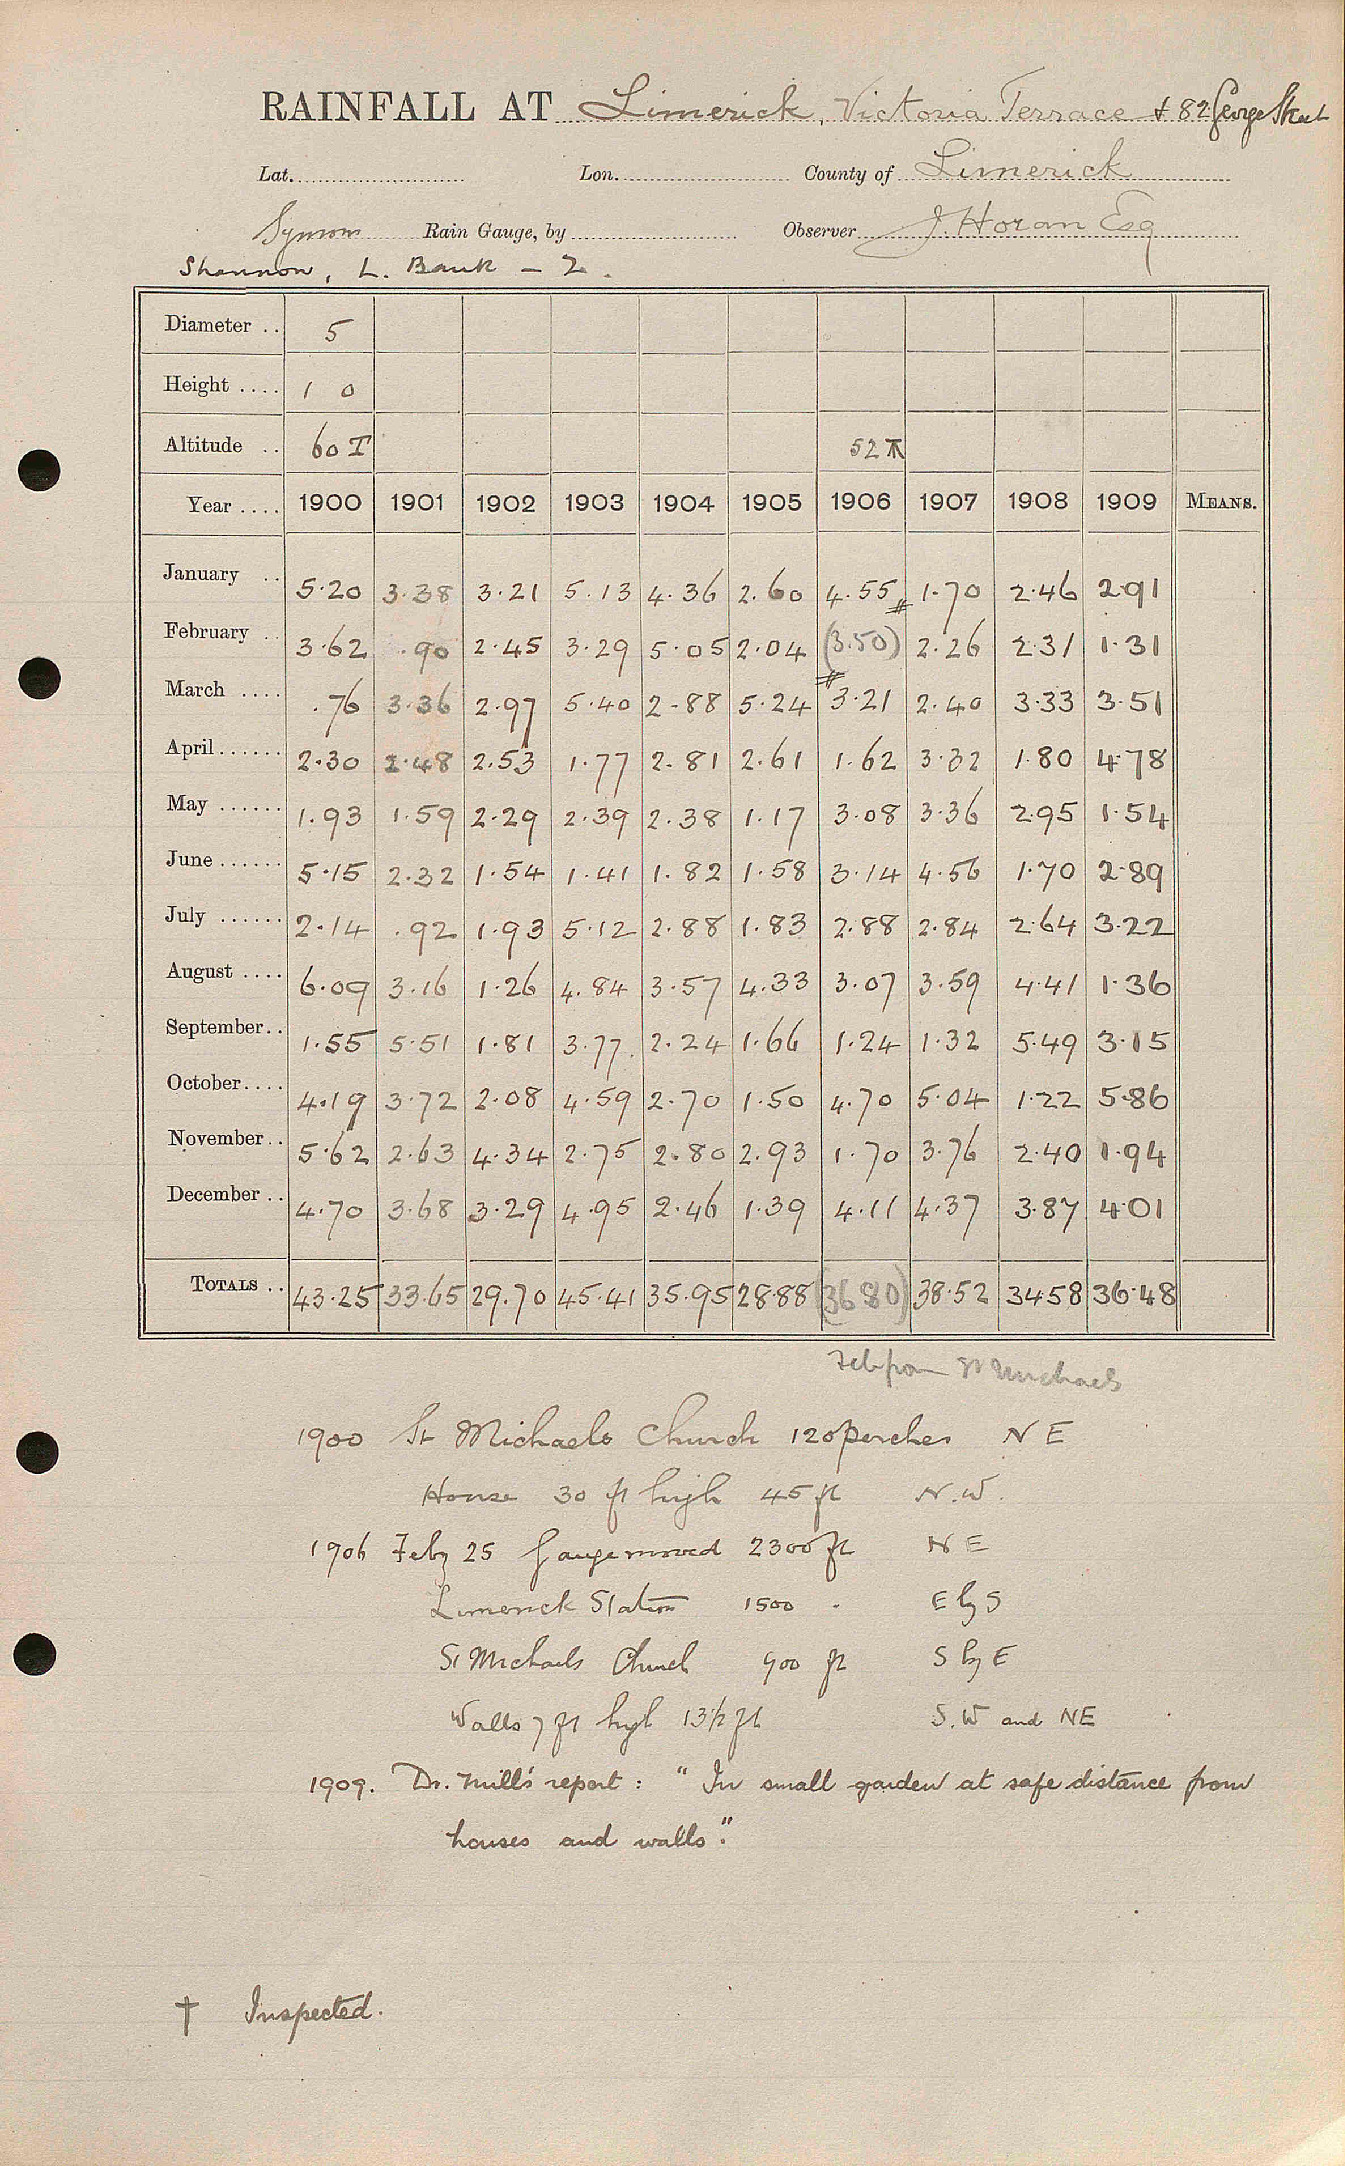 RAINFALL AT Limerick, Victoria Terrace & 82 George Street
Lat. Lon. County of Limerick
Symons Rain Gauge, by Observer J. Horan Esq
Shannon, L. Bank – 2.
Diameter .. 5
Height .... 1 0
Altitude .. 60 T 52 T
Year .... 1900 1901 1902 1903 1904 1905 1906 1907 1908 1909 MEANS.
January .. 5.20 3.38 3.21 5.13 4.36 2.60 4.55 1.70 2.46 2.91
February .. 3.62 .90 2.45 3.29 5.05 2.04 (3.50) 2.26 2.31 1.31
March .... .76 3.36 2.97 5.40 2.88 5.24 3.21 2.40 3.33 3.51
April ...... 2.30 2.48 2.53 1.77 2.81 2.61 1.62 3.32 1.80 4.78
May ...... 1.93 1.59 2.29 2.39 2.38 1.17 3.08 3.36 2.95 1.54
June ...... 5.15 2.32 1.54 1.41 1.82 1.58 3.14 4.56 1.70 2.89
July ...... 2.14 .92 1.93 5.12 2.88 1.83 2.88 2.84 2.64 3.22
August .... 6.09 3.16 1.26 4.84 3.57 4.33 3.07 3.59 4.41 1.36
September .. 1.55 5.51 1.81 3.77 2.24 1.66 1.24 1.32 5.49 3.15
October .... 4.19 3.72 2.08 4.59 2.70 1.50 4.70 5.04 1.22 5.86
November .. 5.62 2.63 4.34 2.75 2.80 2.93 1.70 3.76 2.40 1.94
December .. 4.70 3.68 3.29 4.95 2.46 1.39 4.11 4.37 3.87 4.01
TOTALS .. 43.25 33.65 29.70 45.41 35.95 28.88 (36.80) 38.52 34.58 36.48
Feb from St Michaels
1900 St Michaels Church 120 perches NE
House 30 ft high 45 ft N.W.
1906 Feby 25 Gauge moved 2300 ft NE
Limerick Station 1500 . E by S
St Michaels Church 900 ft S by E
Walls 7 ft high 13½ ft S.W and NE
1909. Dr. Mill's report: "In small garden at safe distance from
houses and walls."
† Inspected.